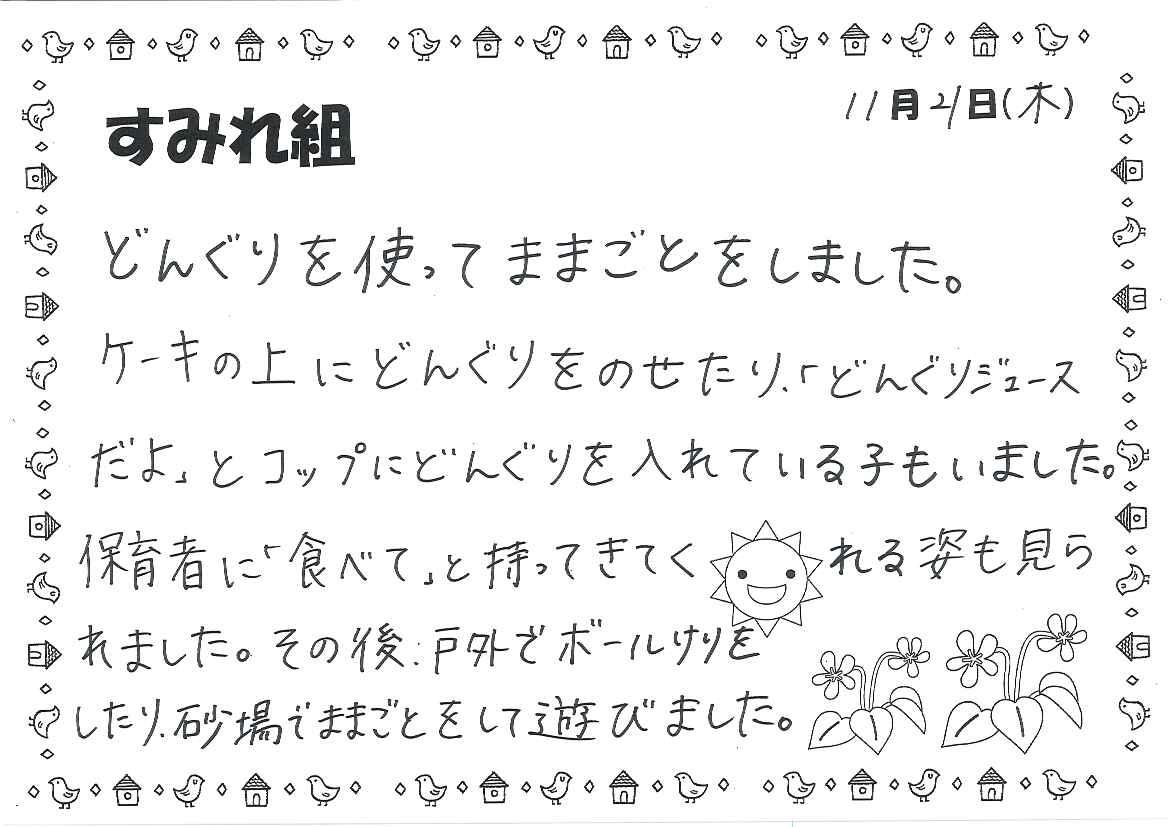 すみれ組
11月21日(木)
どんぐりを使ってままごとをしました。
ケーキの上にどんぐりをのせたり、「どんぐりジュース
だよ」とコップにどんぐりを入れている子もいました。
保育者に「食べて」と持ってきてくれる姿も見ら
れました。その後、戸外でボールけりを
したり、砂場でままごとをして遊びました。